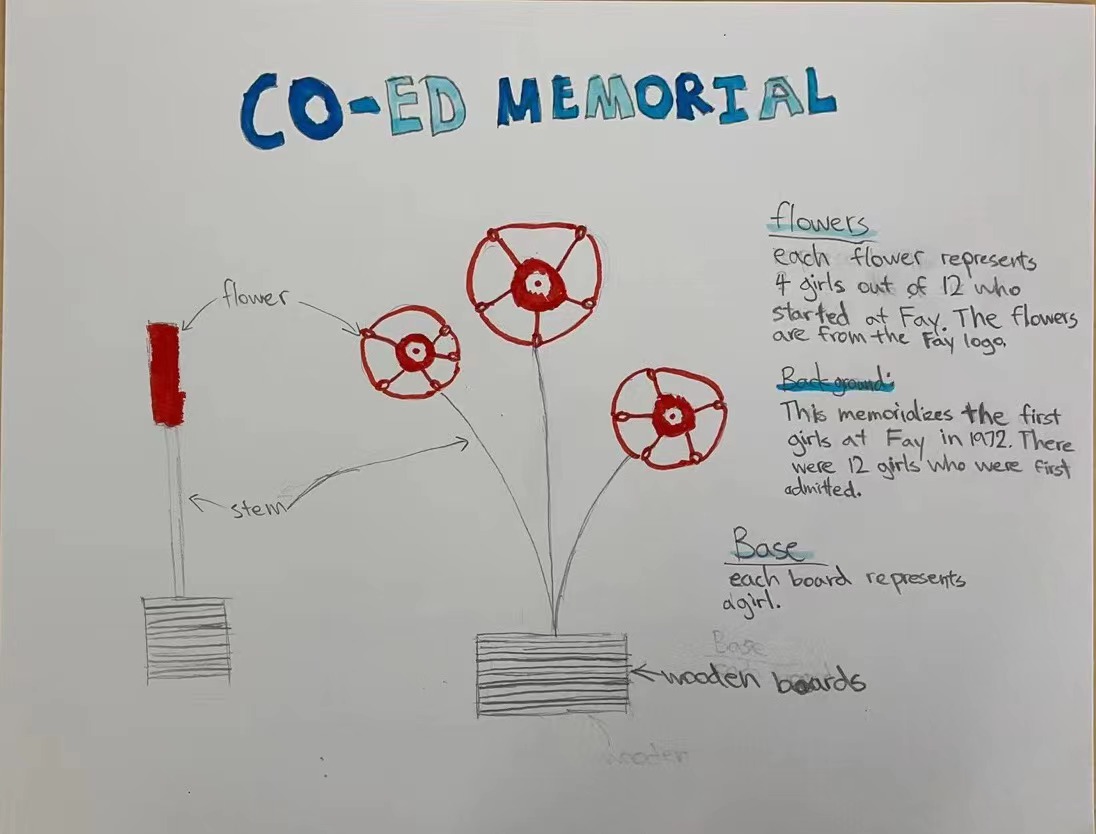 CO-ED MEMORIAL
flowers
each flower represents
4 girls out of 12 who
started at Fay. The flowers
are from the Fay logo.
flower
Background:
This memorializes the first
girls at Fay in 1972. There
were 12 girls who were first
admitted.
stem
Base
each board represents
a girl.
Base
wooden boards
wooden